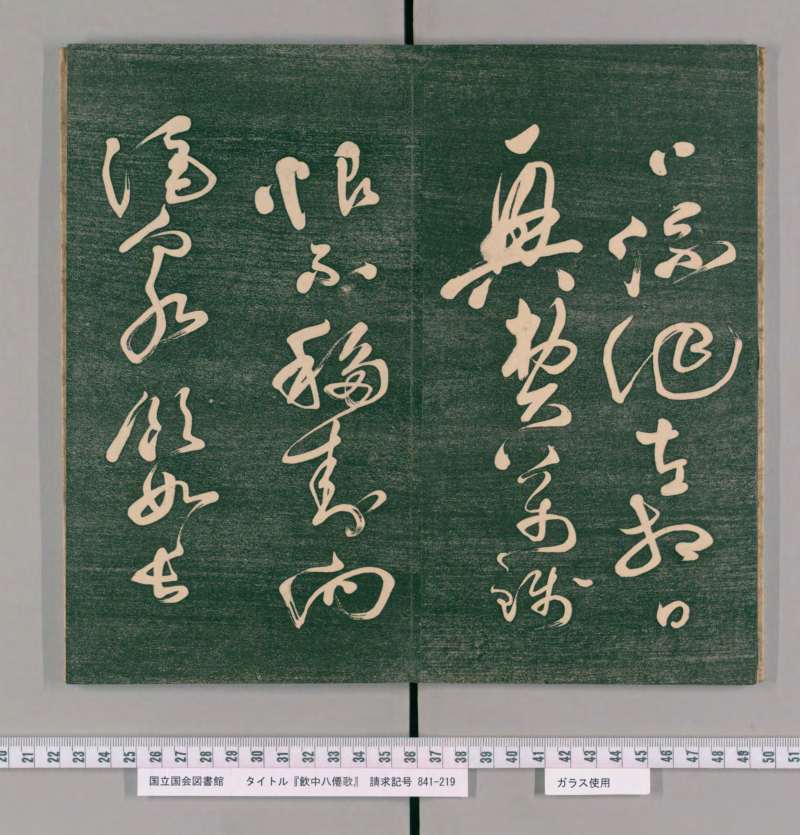 口流涎左相日
興費萬錢
恨不移封向
酒泉飲如長
国立国会図書館　タイトル『飲中八僊歌』　請求記号 841-219
ガラス使用
20 21 22 23 24 25 26 27 28 29 30 31 32 33 34 35 36 37 38 39 40 41 42 43 44 45 46 47 48 49 50 51